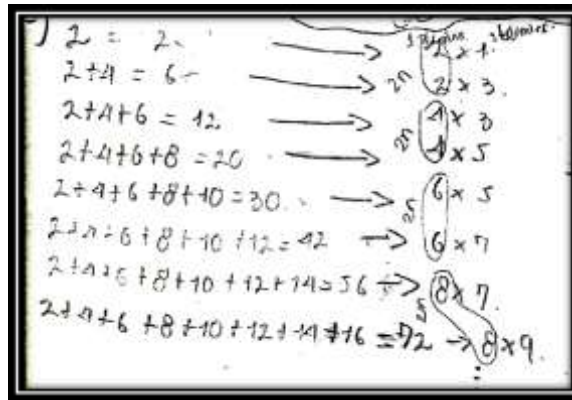 2 = 2 → 2 × 1
2+4 = 6 → 2 × 3.
2+4+6 = 12 → 4 × 3
2+4+6+8 = 20 → 4 × 5
2+4+6+8+10=30. → 6 × 5
2+4+6+8+10+12=42 → 6 × 7
2+4+6+8+10+12+14=56 → 8×7.
2+4+6+8+10+12+14+16 =72 → 8×9.
2n
2n
2n
2n